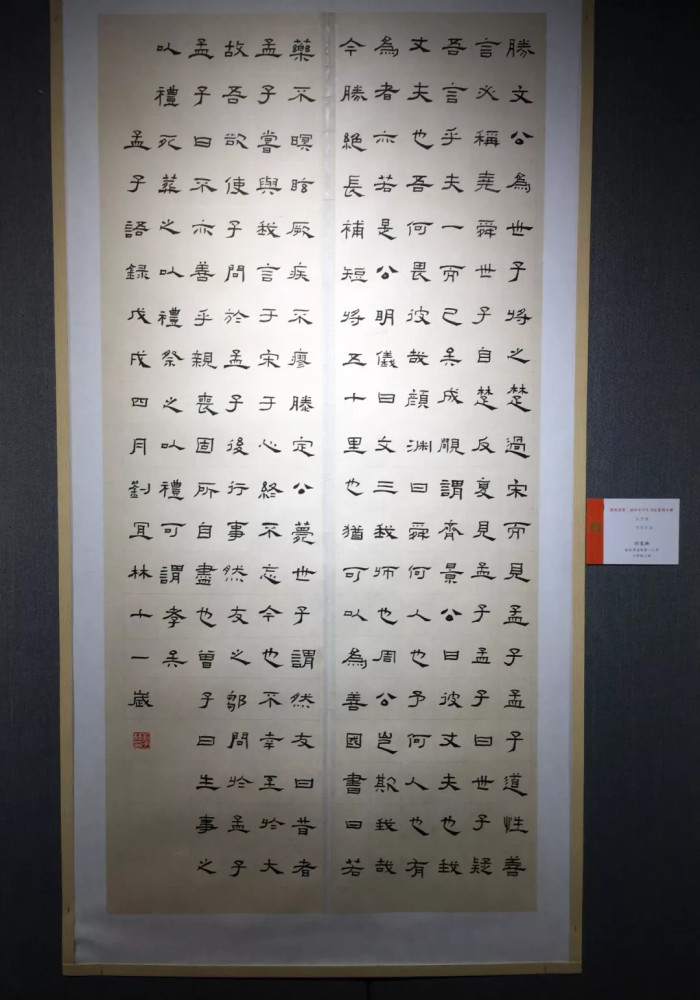 勝文公為世子將之楚過宋而見孟子孟子道性善
言必稱堯舜世子自楚反复見孟子孟子曰世子疑
吾言乎夫一而已矣成覵謂齊景公曰彼丈夫也我
丈夫也吾何畏彼哉顏渊曰舜何人也予何人也有
為者亦若是公明儀曰文三我師也周公豈欺我哉
今勝絕長補短將五十里也猶可以為善國書曰若
藥不瞑眩厥疾不瘳滕定公薨世子謂然友曰昔者
孟子嘗與我言于宋于心終不忘今也不幸至於大
故吾欲使子問於孟子後行事然友之鄒問於孟子
孟子曰不亦善乎親喪固所自盡也曾子曰生事之
以禮死葬之以禮祭之以禮可謂孝矣
孟子語録戊戌四月劉宜林十一歲